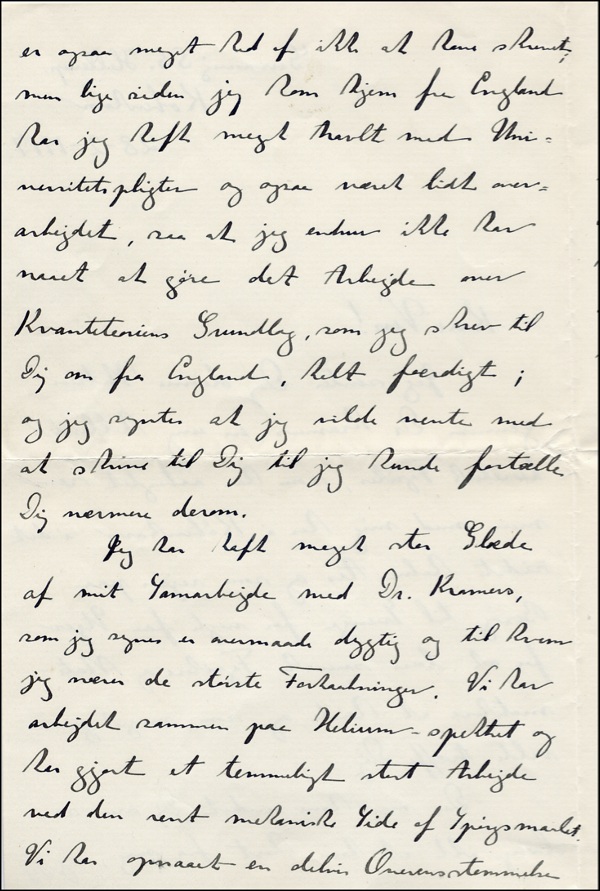 er ogsaa meget ked af ikke at have skrevet;
men lige siden jeg kom hjem fra England
har jeg haft meget travlt med Uni-
versitetspligter og ogsaa været lidt over-
arbejdet, saa at jeg endnu ikke har
naaet at gøre det Arbejde over
Kvanteteoriens Grundlag, som jeg skrev til
Dig om fra England, helt færdigt;
og jeg syntes at jeg vilde vente med
at skrive til Dig til jeg kunde fortælle
Dig nærmere derom.
Jeg har haft meget stor Glæde
af mit Samarbejde med Dr. Kramers,
som jeg synes er overmaade dygtig og til hvem
jeg nærer de største Forhaabninger. Vi har
arbejdet sammen paa Helium-spektret og
har gjort et temmeligt stort Arbejde
ved den rent mekaniske Side af Spørgsmaalet.
Vi har opnaaet en delvis Overensstemmelse